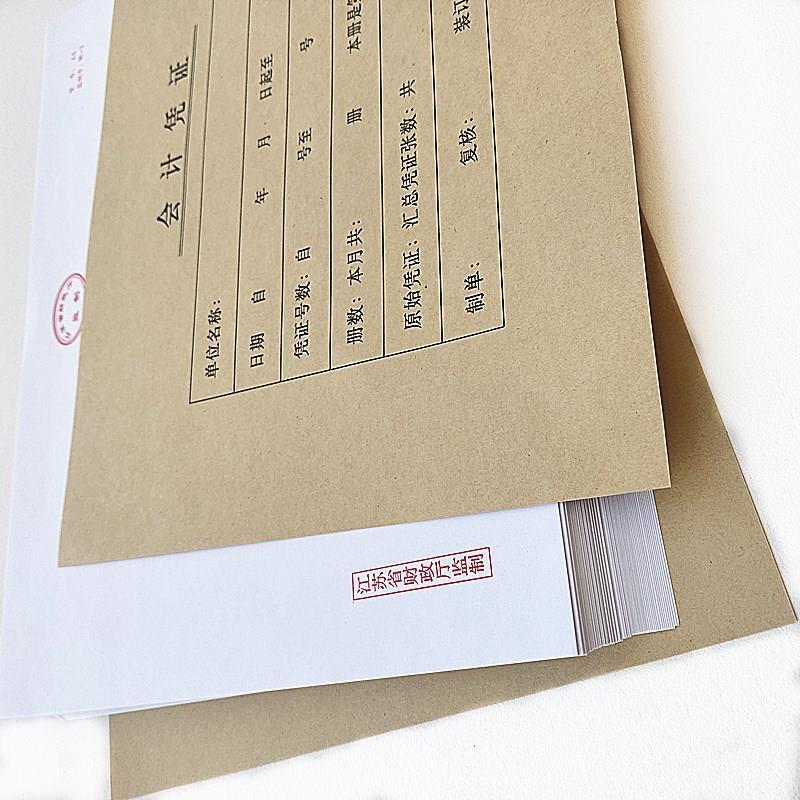 会计凭证
单位名称：
日期 自 年 月 日起至
凭证号数：自 号至 号
册数：本月共： 册 本册是
原始凭证：汇总凭证张数：共
制单： 复核： 装订
江苏省财政厅监制